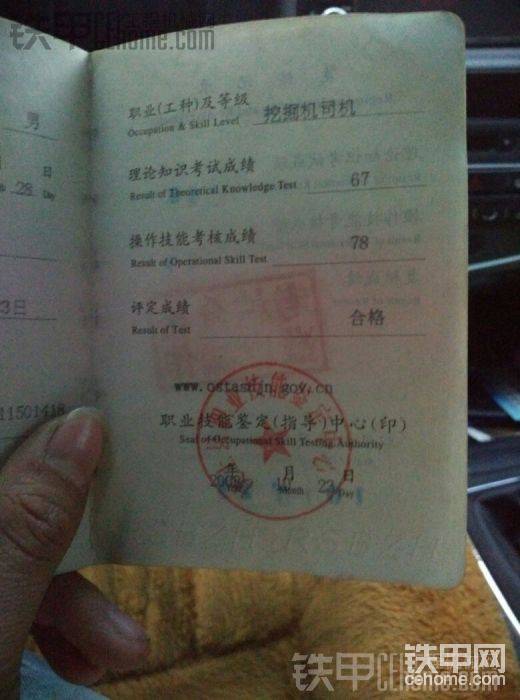 铁甲 CEhome.com
男
日
28 Day
3日
11501418
职业(工种)及等级 挖掘机司机
Occupation & Skill Level
理论知识考试成绩 67
Result of Theoretical Knowledge Test
操作技能考核成绩 78
Result of Operational Skill Test
评定成绩 合格
Result of Test
www.ostasdjn.gov.cn
职业技能鉴定(指导)中心(印)
Seal of Occupational Skill Testing Authority
年 10 月 23 日
Year Month Day
铁甲 CEhome.com
铁甲网
cehome.com